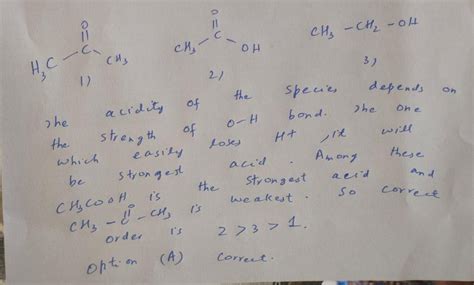 O
||
H3C - C - CH3
1)
O
||
CH3 - C - OH
2)
CH3 - CH2 - OH
3)
The acidity of the species depends on
the strength of O-H bond. The one
which easily loses H+, it will
be strongest acid. Among these
CH3COOH is the strongest acid and
CH3 - C(=O) - CH3 is weakest. So correct
order is 2 > 3 > 1.
Option (A) correct.